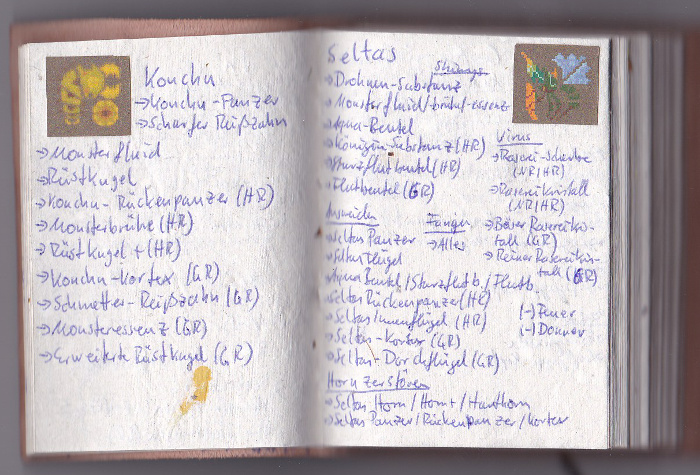 Konchu
→Konchu-Panzer
→Scharfer Reißzahn
→Monsterfluid
→Rüstkugel
→Konchu-Rückenpanzer (HR)
→Monsterbrühe (HR)
→Rüstkugel + (HR)
→Konchu-Kortex (GR)
→Schmetter-Reißzahn (GR)
→Monsteressenz (GR)
→Erweiterte Rüstkugel (GR)
Seltas
→Drohnen-Substanz
→Monsterfluid/brühe/-essenz
→Aqua-Beutel
→Königin-Substanz (HR)
→Sturzflutbeutel (HR)
→Flutbeutel (GR)
Virus
→Raserei-Scherbe
(NR/HR)
→Rasereikristall
(NR/HR)
→Böser Rasereikris-
tall (GR)
→Reiner Rasereikris-
tall (GR)
Ausweiden
→Seltas Panzer
→Seltas Flügel
→Aqua Beutel/Sturzflutb./Flutb.
→Seltas Rückenpanzer (HR)
→Seltas Innenflügel (HR)
→Seltas-Kortex (GR)
→Seltas-Dorchflügel (GR)
Fangen
→Alles
(-) Feuer
(-) Donner
Horn zerstören
→Seltas Horn/Horn+/Harthorn
→Seltas Panzer/Rückenpanzer/Kortex